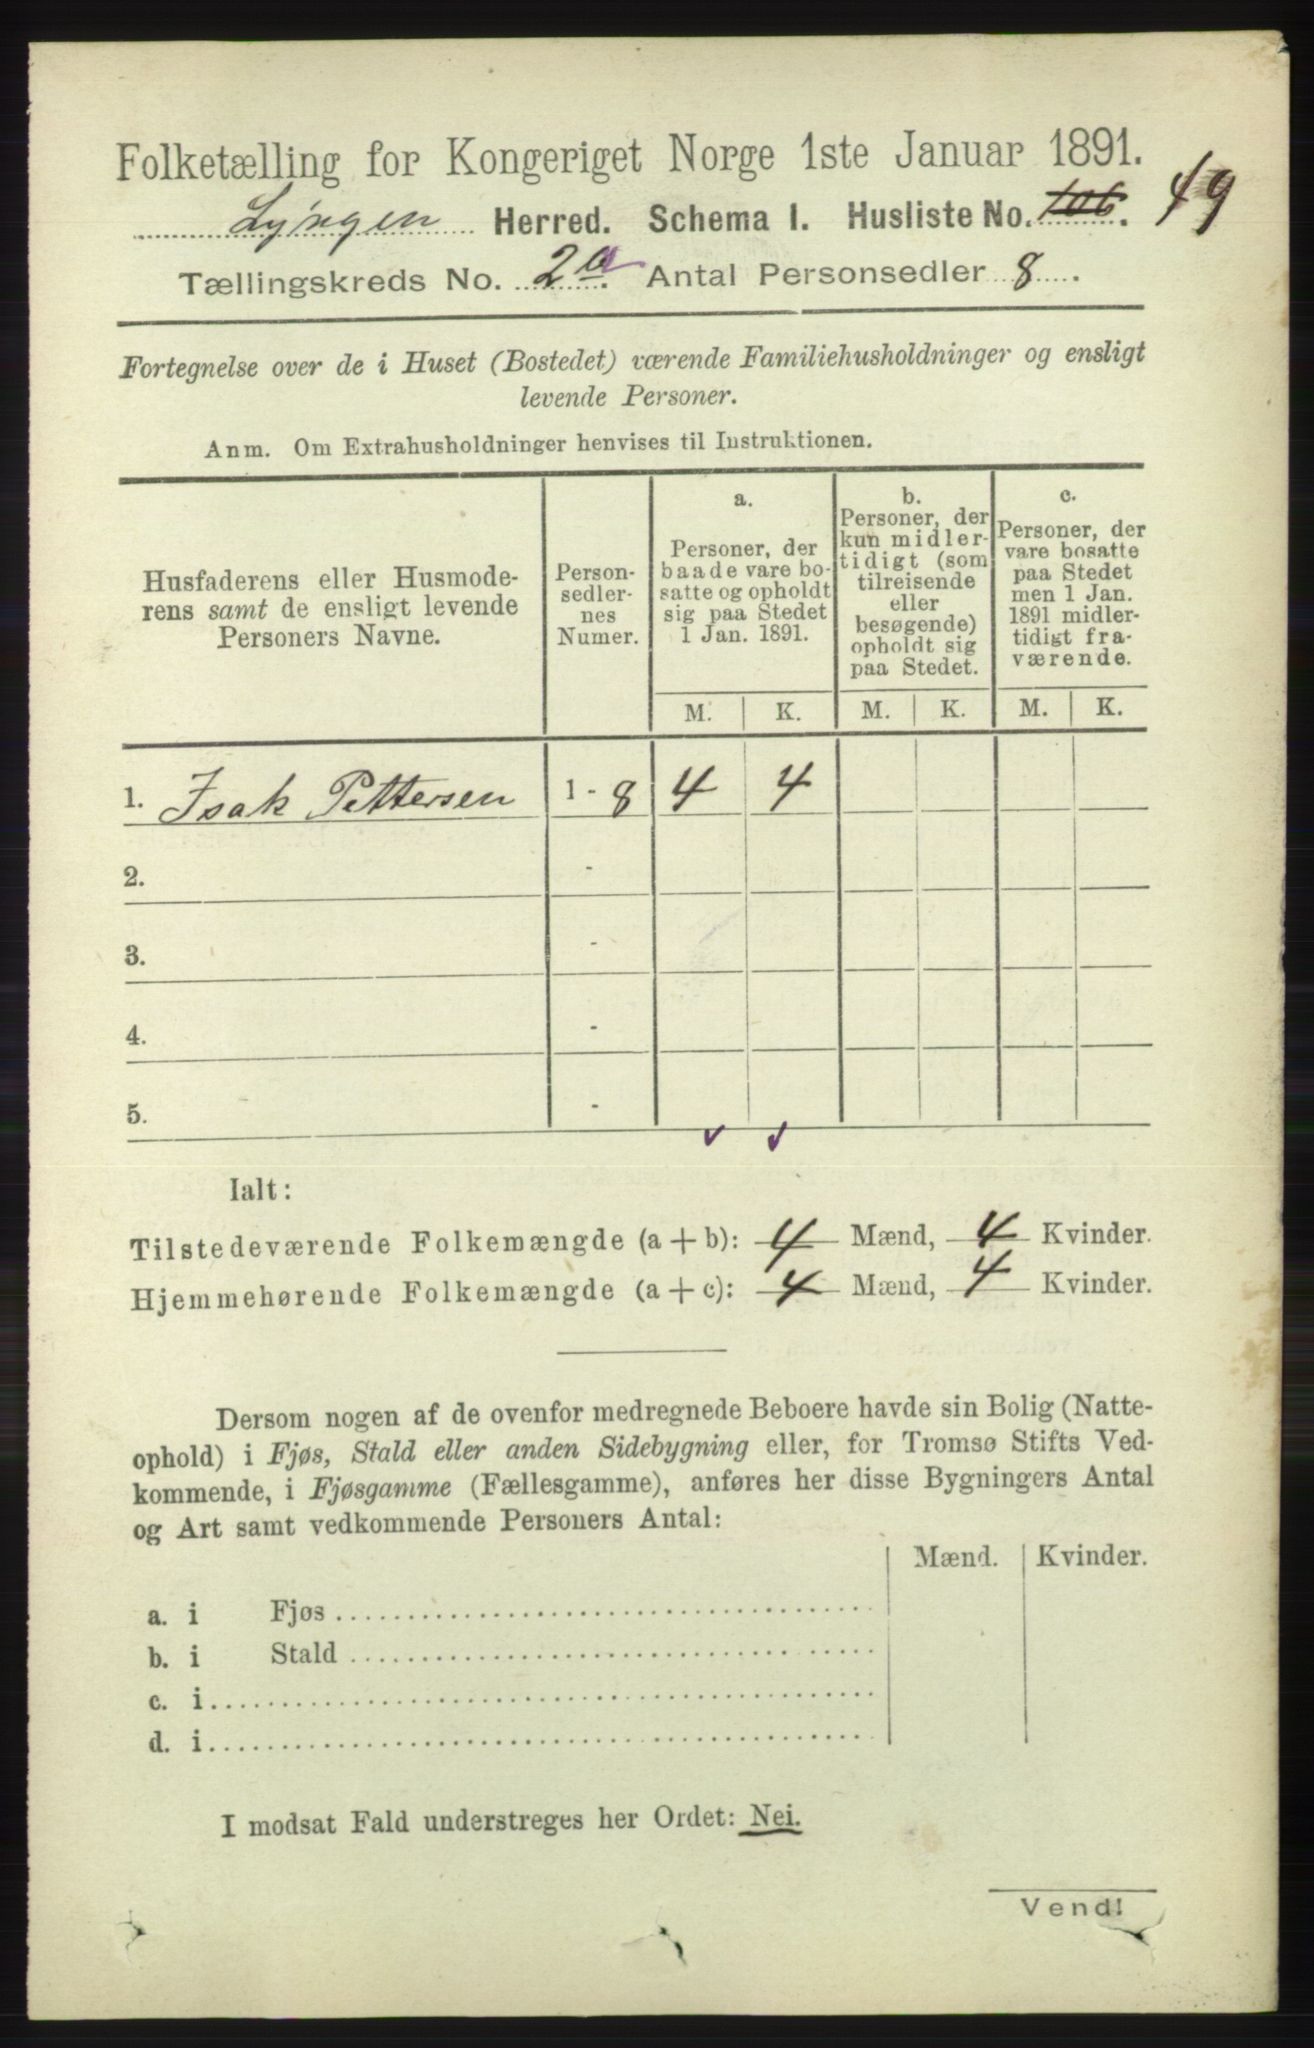 Folketælling for Kongeriget Norge 1ste Januar 1891.
Lyngen Herred. Schema I. Husliste No. 106. 49
Tællingskreds No. 2 a. Antal Personsedler 8.
Fortegnelse over de i Huset (Bostedet) værende Familiehusholdninger og ensligt
levende Personer.
Anm. Om Extrahusholdninger henvises til Instruktionen.
Husfaderens eller Husmode-
rens samt de ensligt levende
Personers Navne.
Person-
sedler-
nes
Numer.
a.
Personer, der
baade vare bo-
satte og opholdt
sig paa Stedet
1 Jan. 1891.
b.
Personer, der
kun midler-
tidigt (som
tilreisende
eller
besøgende)
opholdt sig
paa Stedet.
c.
Personer, der
vare bosatte
paa Stedet
men 1 Jan.
1891 midler-
tidigt fra-
værende.
M. K. M. K. M. K.
1. Isak Pettersen 1 - 8 4 4
2. -
3. -
4. -
5. -
Ialt:
Tilstedeværende Folkemængde (a + b): 4 Mænd, 4 Kvinder.
Hjemmehørende Folkemængde (a + c): 4 Mænd, 4 Kvinder.
Dersom nogen af de ovenfor medregnede Beboere havde sin Bolig (Natte-
ophold) i Fjøs, Stald eller anden Sidebygning eller, for Tromsø Stifts Ved-
kommende, i Fjøsgamme (Fællesgamme), anføres her disse Bygningers Antal
og Art samt vedkommende Personers Antal:
Mænd. Kvinder.
a. i Fjøs
b. i Stald
c. i
d. i
I modsat Fald understreges her Ordet: Nei.
Vend!